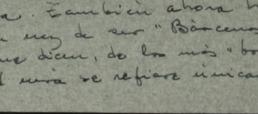 a. También ahora h
vez de ser "Bárcenas
que dicen, de los más "bo
mira se refiere única